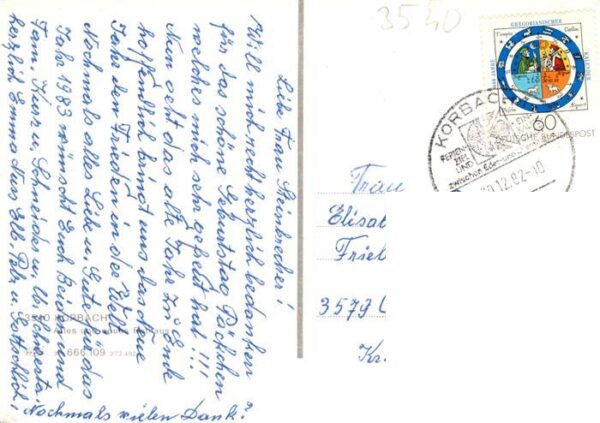 Liebe Frau Steinbrecher!
Will mich recht herzlich bedanken
für das schöne Geburtstag Päckchen
welches mich sehr gefreut hat!!!
Nun geht das alte Jahr zu Ende
hoffentlich bringt uns das Neue
Jahr den Frieden in der Welt.
Nochmals alles Liebe u. Gute für das
Jahr 1983 wünscht Euch Beiden und
Fam. Kurz u. Schneider u.
herzlich Emma
Nochmals vielen Dank!
3540
GREGORIANISCHER
KALENDER
60
DEUTSCHE BUNDESPOST
KORBACH
FERIEN-
ZIEL
UND
zwischen Eder- und
.12.82-10
Frau
Elisa
Friel
3579
Kr.
3540 KORBACH
666.109